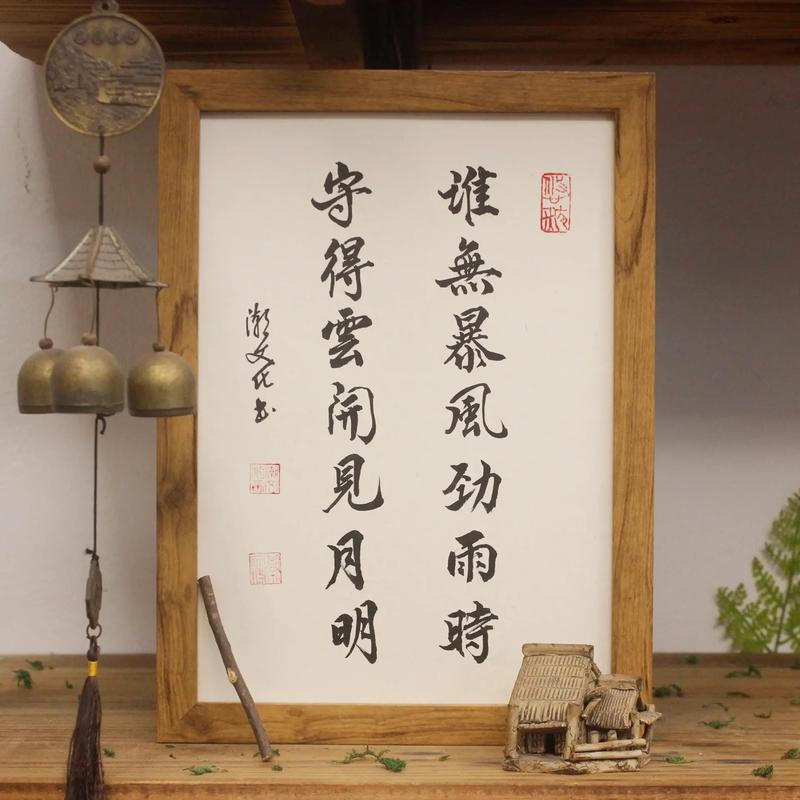 誰無暴風劲雨時
守得雲開見月明
潮文化书